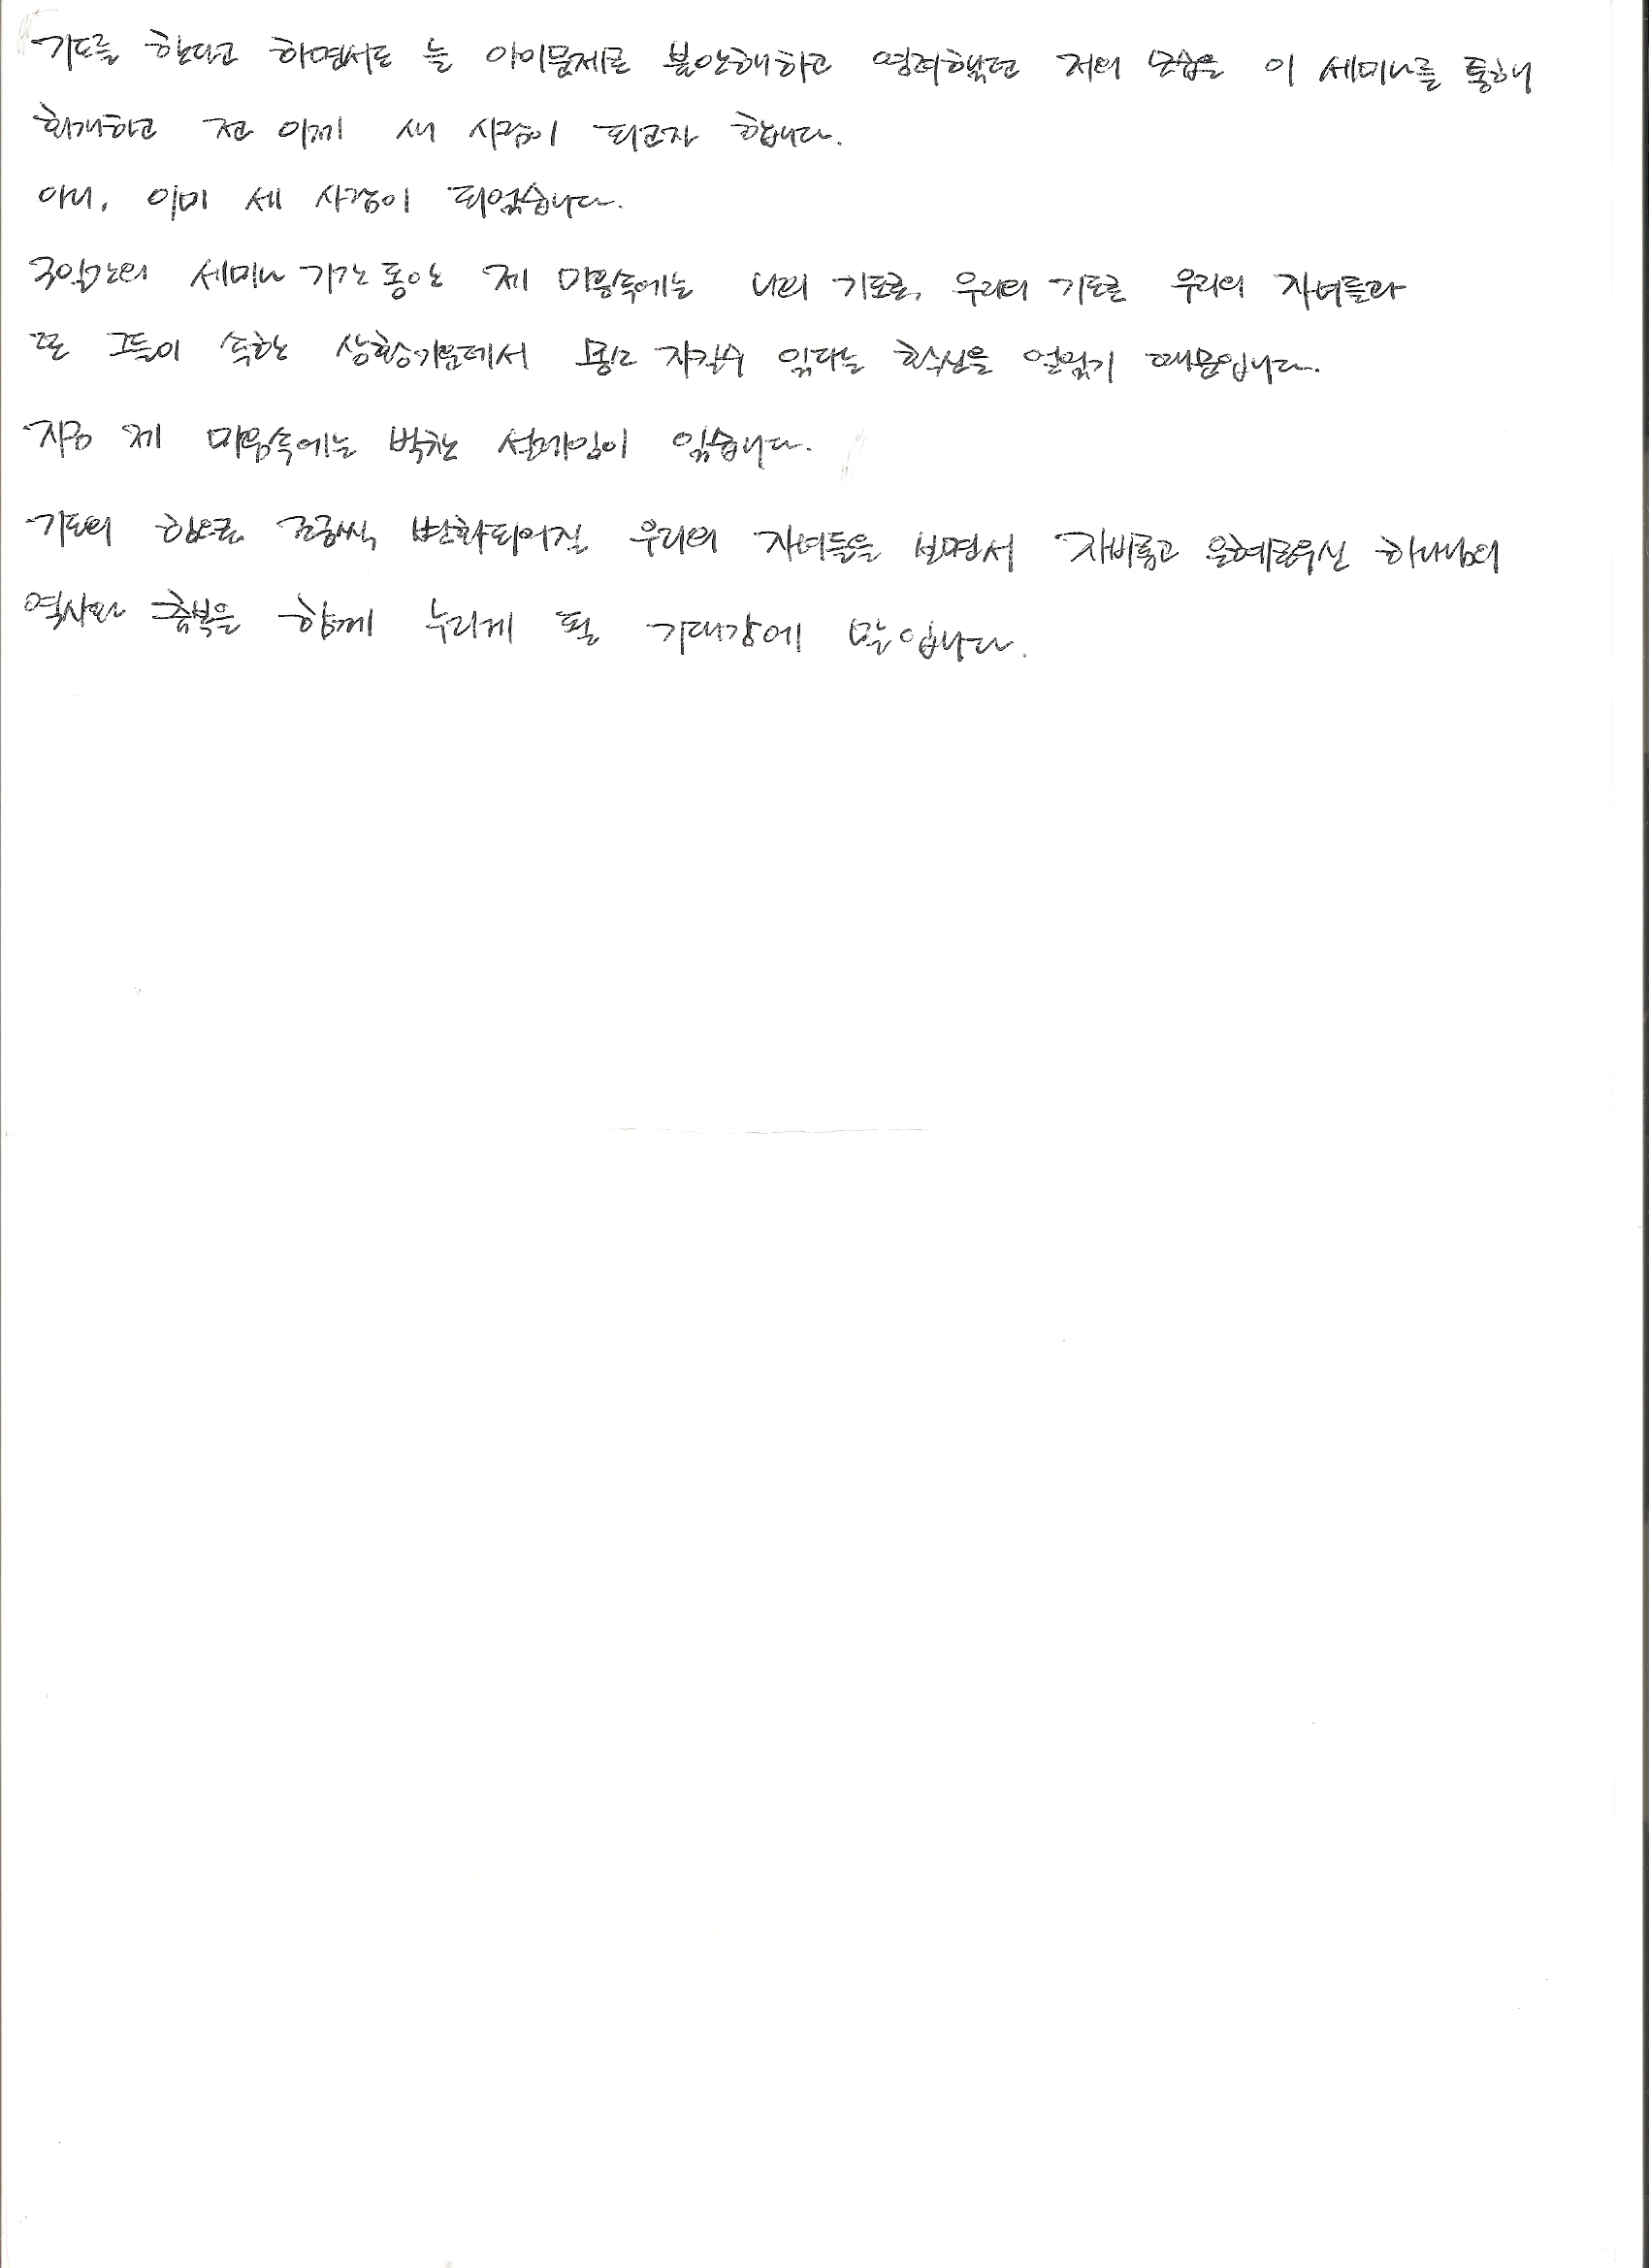 기도를 한다고 하면서도 늘 아이문제로 불안해하고 염려했던 저의 모습을 이 세미나를 통해
회개하고 전 이제 새 사람이 되고자 합니다.
아니, 이미 새 사람이 되었습니다.
주일간의 세미나 기간동안 제 마음속에는 나의 기도로, 우리의 기도로 우리의 자녀들과
또 그들이 속한 상황가운데서 있다는 확신을 얻었기 때문입니다.
지금 제 마음속에는 벅찬 설레임이 있습니다.
기도의 힘으로 조금씩 변화되어질 우리의 자녀들을 보면서 자비롭고 은혜로우신 하나님의
역사와 축복을 함께 누리게 될 기대감에 말입니다.